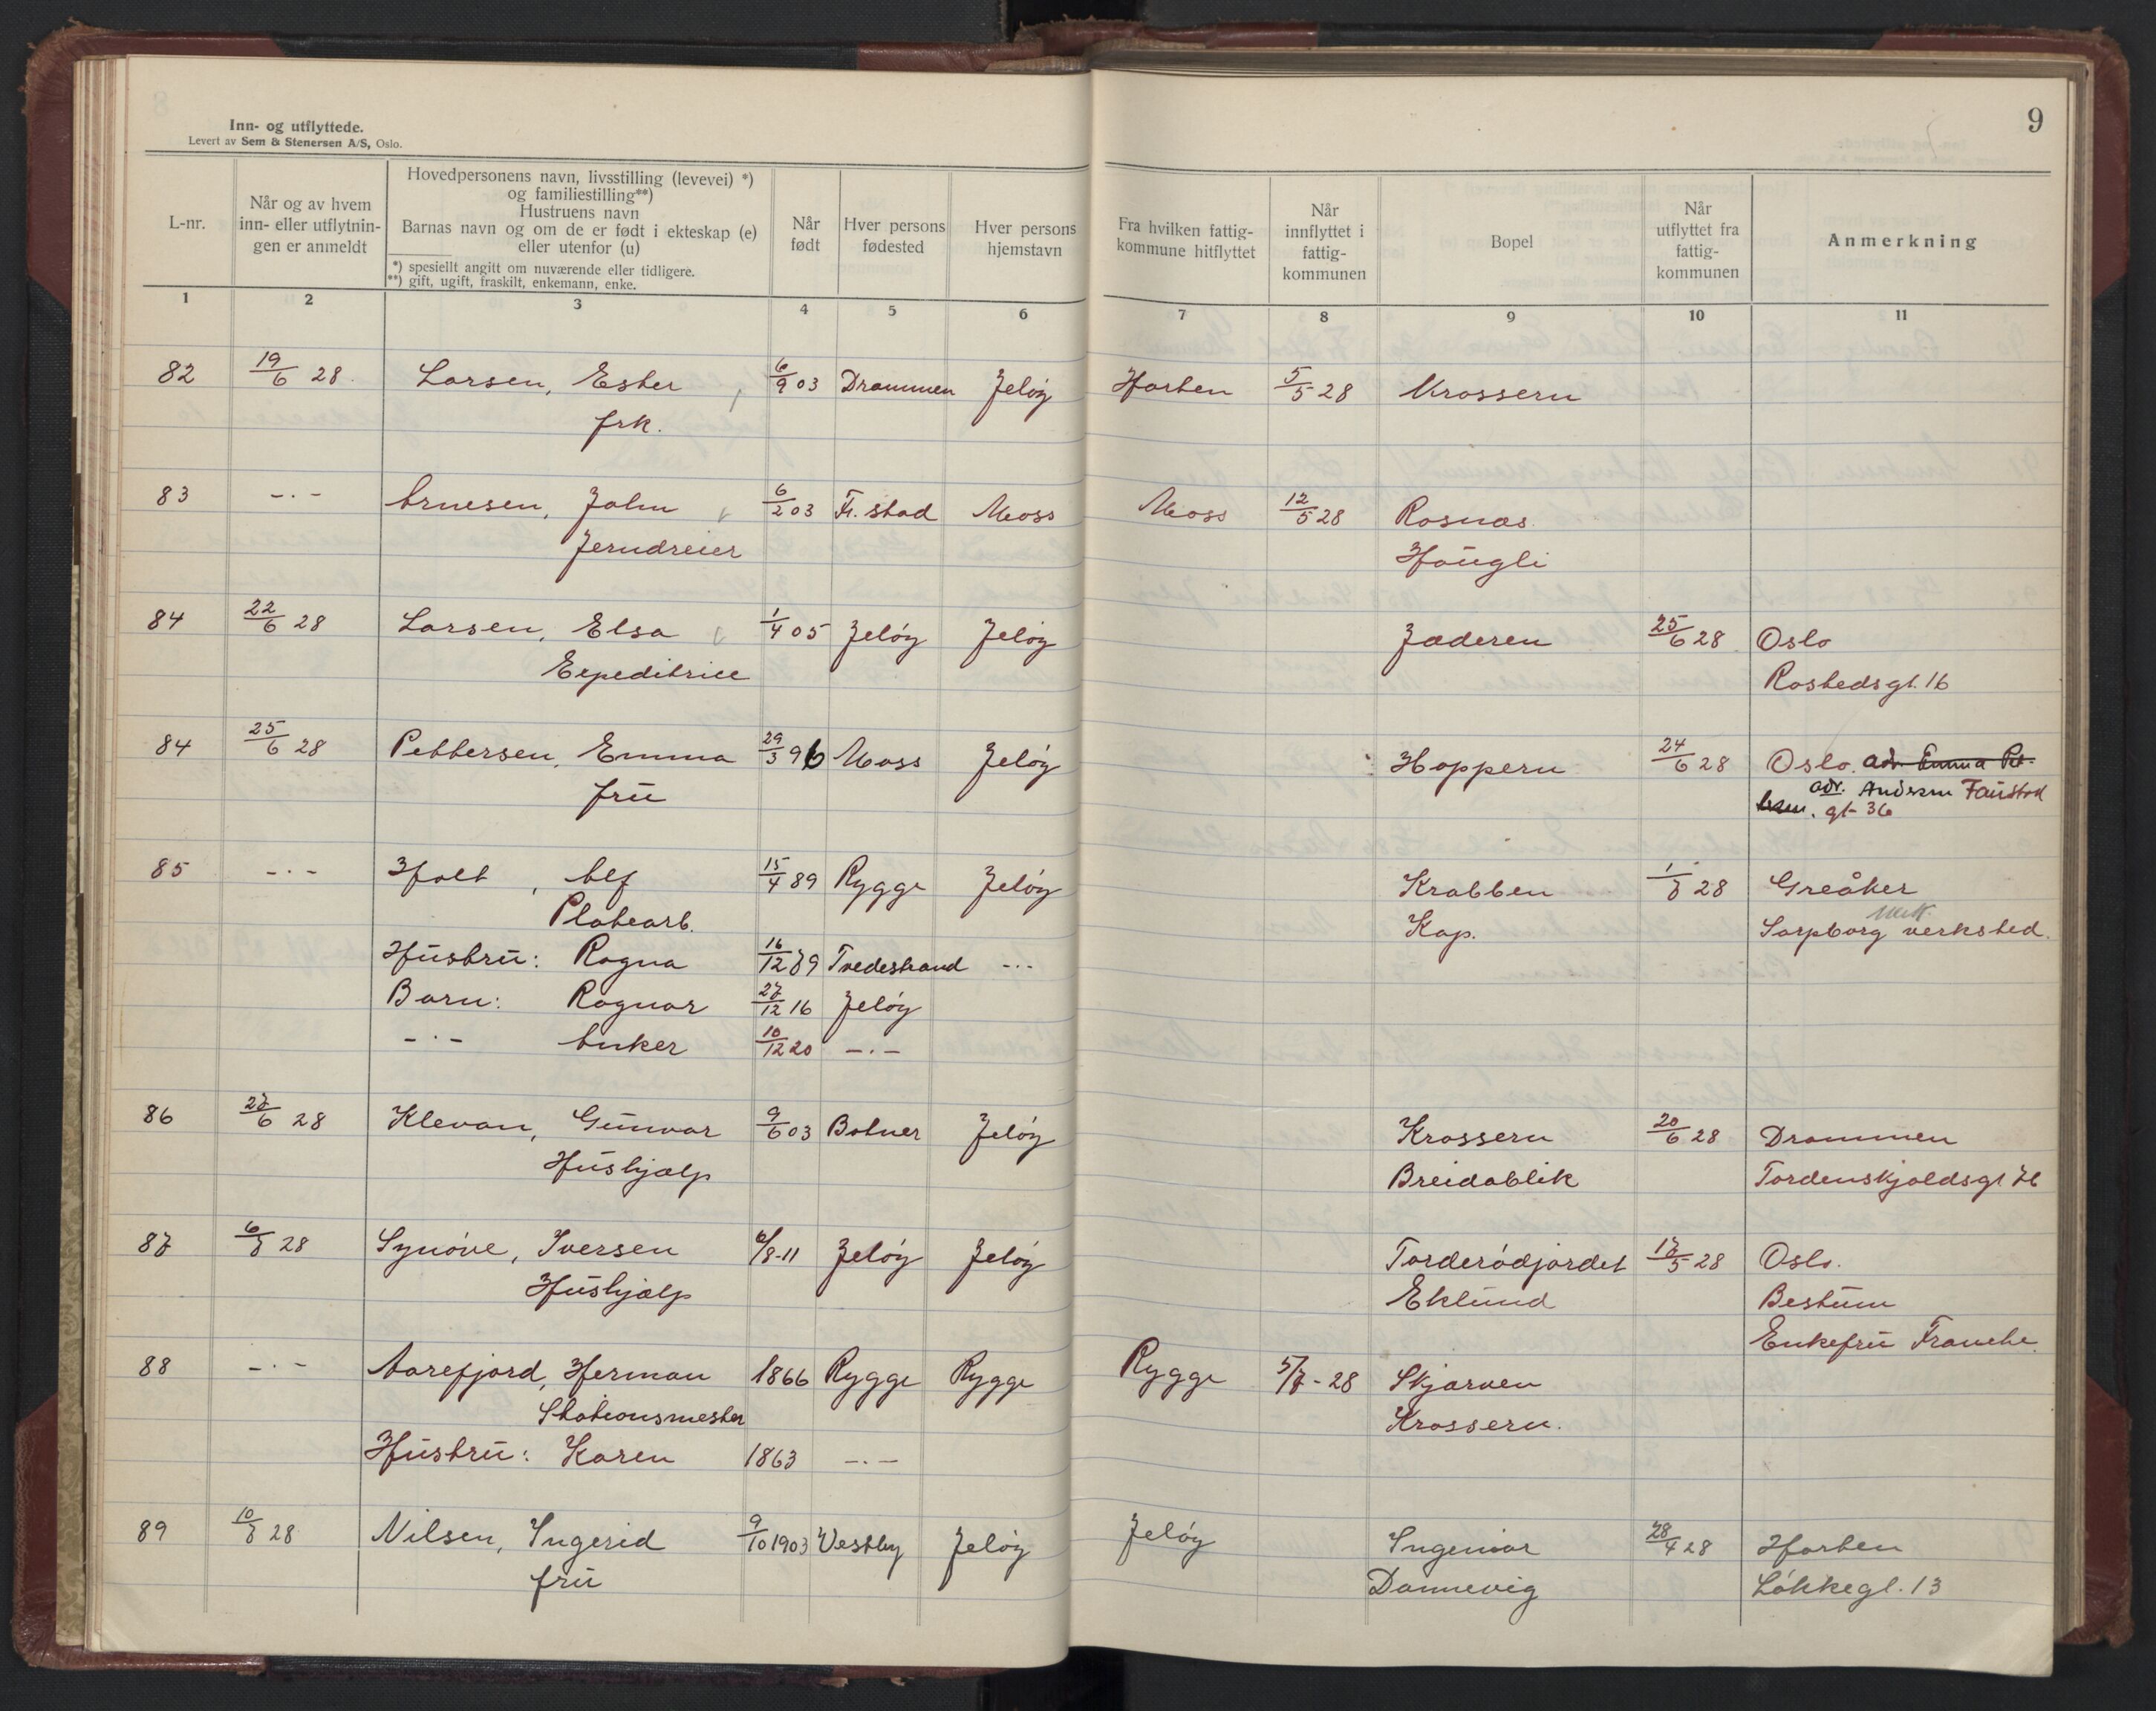 9
Inn- og utflyttede.
Levert av Sem & Stenersen A/S, Oslo.
L-nr.
Når og av hvem inn- eller utflytningen er anmeldt
Hovedpersonens navn, livsstilling (levevei) *)
og familiestilling**)
Hustruens navn
Barnas navn og om de er født i ekteskap (e)
eller utenfor (u)
*) spesiellt angitt om nuværende eller tidligere.
**) gift, ugift, fraskilt, enkemann, enke.
Når født
Hver persons fødested
Hver persons hjemstavn
Fra hvilken fattigkommune hitflyttet
Når innflyttet i fattigkommunen
Bopel
Når utflyttet fra fattigkommunen
Anmerkning
1 2 3 4 5 6 7 8 9 10 11
82 19/6 28. Larsen, Ester 6/9 03 Drammen Jeløy Horten 5/5 28 Krossern
frk.
83 -·- Arnesen, John 6/2 03 Fr.stad Moss Moss 12/5 28 Rosnæs
Jerndreier Haugli
84 22/6 28 Larsen, Elsa 1/4 05 Jeløy Jeløy Jæderen 25/6 28 Oslo
Expeditrice Rostedsgt. 16
84 25/6 28 Pettersen, Emma 29/3 96 Moss Jeløy Hoppern 24/6 28 Oslo. adr. Emma Pet-
frü adr. Andersen
tersen. gt- 36
85 -·- Holt, Alf 15/4 89 Rygge Jeløy Krabben 1/7 28 Greåker
Platearb. Kap. Sarpborg mek. verksted.
Hüstrü: Ragna 16/12 79 Tvedestrand -·-
Barn: Ragnar 27/12 16 Jeløy
-·- Anker 10/12 20 -·-
86 27/6 28 Klevan, Günvor 9/6 03 Botner Jeløy Krossern 20/6 28 Drammen
Hüshjælp Breidablik Tordenskjoldsgt 76
87 6/7 28 Synøve, Iversen 6/8-11 Jeløy Jeløy Torderødjordet 17/5 28 Oslo.
Hüshjælp Eklünd Bestüm
Enkefrü Franche.
88 -·- Aarefjord, Herman 1866 Rygge Rygge Rygge 5/7-28 Skjarven
Stationsmester Krossern.
Hüstrü: Karen 1863 -·-
89 10/7 28 Nilsen, Ingerid 9/10 1903 Vestby Jeløy Jeløy Ingemar 28/4 28 Horten
frü Dannevig Løkkegt. 13